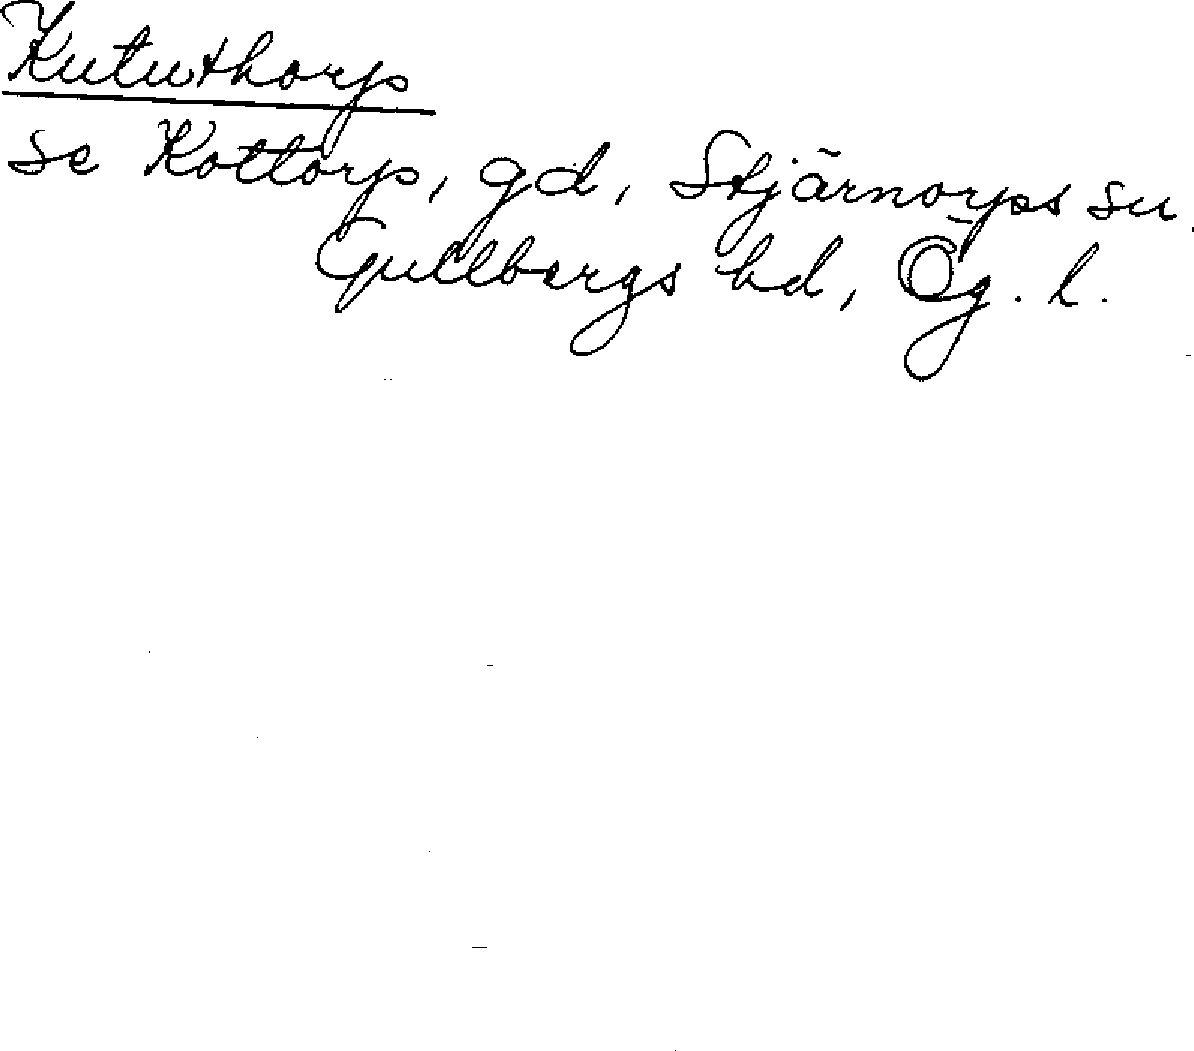 Kututhorp
se Kottorp, gd, Stjärnorps sn.
Gullbergs hd, Ög. l.